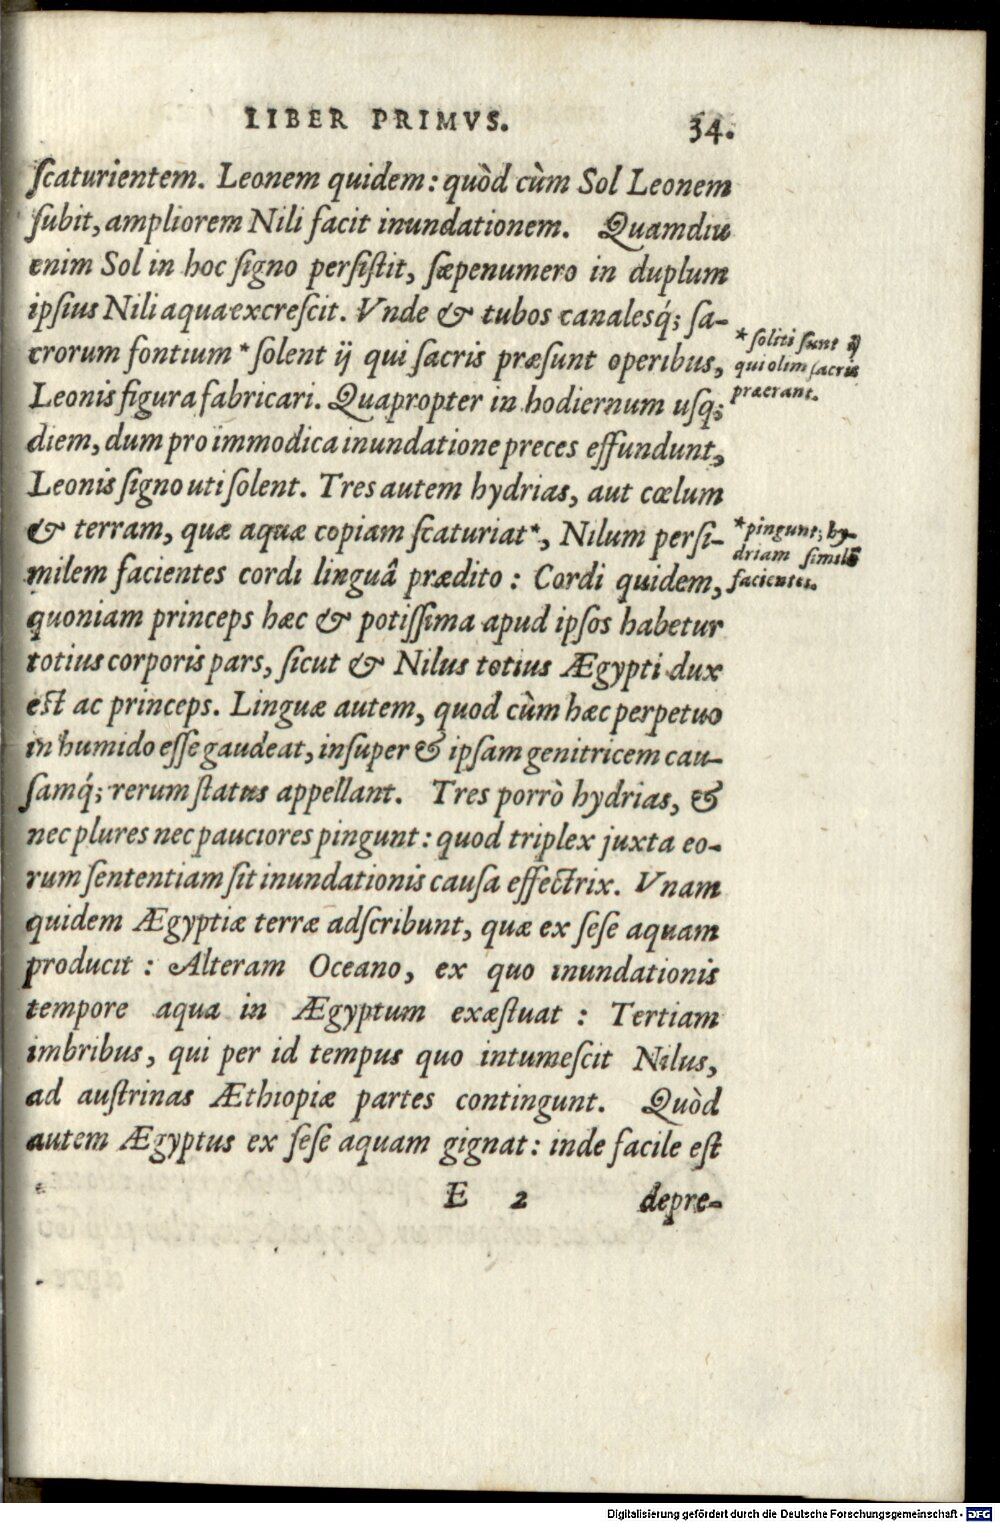 LIBER PRIMVS. 34.
ſcaturientem. Leonem quidem: quòd cùm Sol Leonem
ſubit, ampliorem Nili facit inundationem. Quamdiu
enim Sol in hoc ſigno perſiſtit, ſæpenumero in duplum
ipſius Nili aqua excreſcit. Vnde & tubos canalesq́; ſa-
crorum fontium * ſolent ij qui ſacris præſunt operibus,
Leonis figura fabricari. Quapropter in hodiernum uſq;
diem, dum pro immodica inundatione preces effundunt,
Leonis ſigno uti ſolent. Tres autem hydrias, aut cœlum
& terram, quæ aquæ copiam ſcaturiat*, Nilum perſi-
milem facientes cordi linguâ prædito: Cordi quidem,
quoniam princeps hæc & potiſſima apud ipſos habetur
totius corporis pars, ſicut & Nilus totius Ægypti dux
eſt ac princeps. Linguæ autem, quod cùm hæc perpetuo
in humido eſſe gaudeat, inſuper & ipſam genitricem cau-
ſamq́; rerum ſtatus appellant. Tres porrò hydrias, &
nec plures nec pauciores pingunt: quod triplex juxta eo-
rum ſententiam ſit inundationis cauſa effectrix. Vnam
quidem Ægyptiæ terræ adſcribunt, quæ ex ſeſe aquam
producit: Alteram Oceano, ex quo inundationis
tempore aqua in Ægyptum exæſtuat: Tertiam
imbribus, qui per id tempus quo intumeſcit Nilus,
ad auſtrinas Æthiopiæ partes contingunt. Quòd
autem Ægyptus ex ſeſe aquam gignat: inde facile eſt
E 2 depre-
* ſoliti ſunt ij
qui olim ſacris
praerant.
* pingunt; hy-
driam ſimilē
facientes.
Digitalisierung gefördert durch die Deutsche Forschungsgemeinschaft - DFG